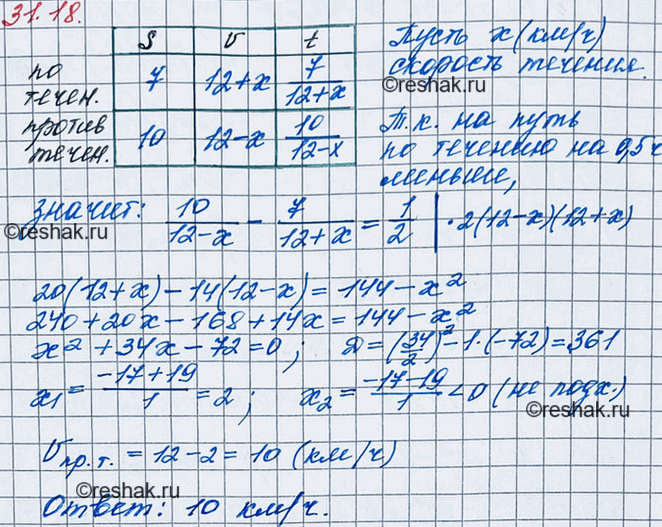 31.18.
S v t
по течен. 7 12+x 7/(12+x)
против течен. 10 12-x 10/(12-x)
Пусть x (км/ч)
скорость течения.
©reshak.ru
Т.к. на путь
по течению на 0,5 ч
меньше,
значит: 10/(12-x) - 7/(12+x) = 1/2 | ·2(12-x)(12+x)
©reshak.ru
20(12+x)-14(12-x)=144-x²
240+20x-168+14x=144-x²
x²+34x-72=0; D=(34/2)²-1·(-72)=361
x₁=(-17+19)/1=2; x₂=(-17-19)/1<0 (не подх.)
©reshak.ru
Vпр.т.=12-2=10 (км/ч)
©reshak.ru
Ответ: 10 км/ч.